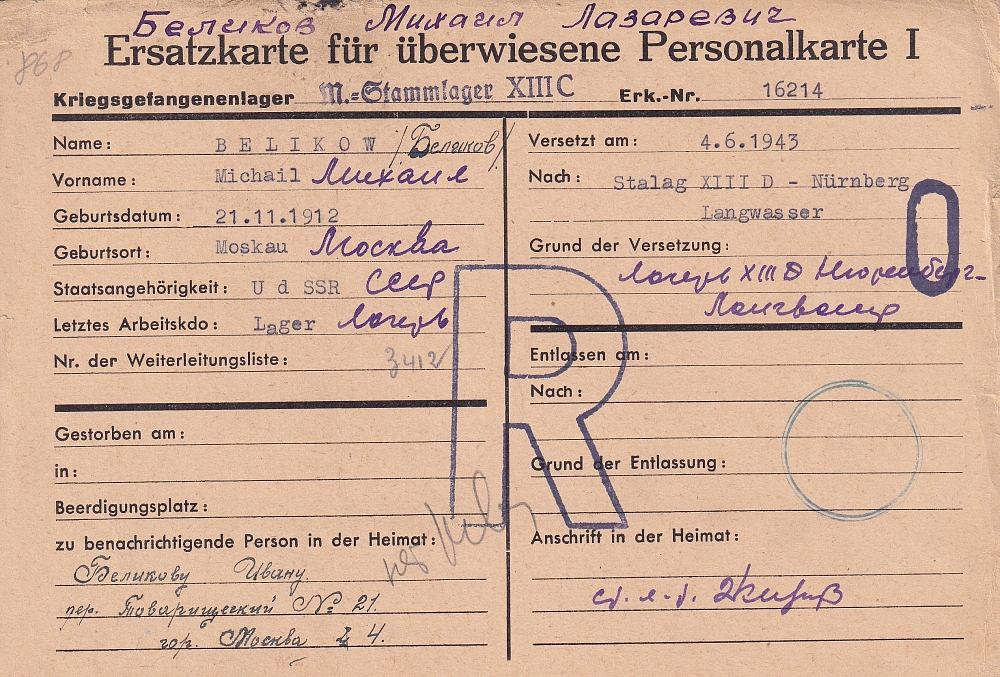 Беликов Михаил Лазаревич
868
Ersatzkarte für überwiesene Personalkarte I
Kriegsgefangenenlager M.=Stammlager XIII C Erk.-Nr. 16214
Name: BELIKOW /Беликов/
Vorname: Michail Михаил
Geburtsdatum: 21.11.1912
Geburtsort: Moskau Москва
Staatsangehörigkeit: U d SSR СССР
Letztes Arbeitskdo: Lager Лагерь
Nr. der Weiterleitungsliste: 3412
Gestorben am:
in:
Beerdigungsplatz:
zu benachrichtigende Person in der Heimat:
Беликову Ивану.
пер. Товарищеский № 21.
гор. Москва 4.
Versetzt am: 4.6.1943
Nach: Stalag XIII D - Nürnberg
Langwasser
Grund der Versetzung:
Лагерь XIII D Нюренберг-
Лангвассер
Entlassen am:
Nach:
Grund der Entlassung:
Anschrift in der Heimat:
R